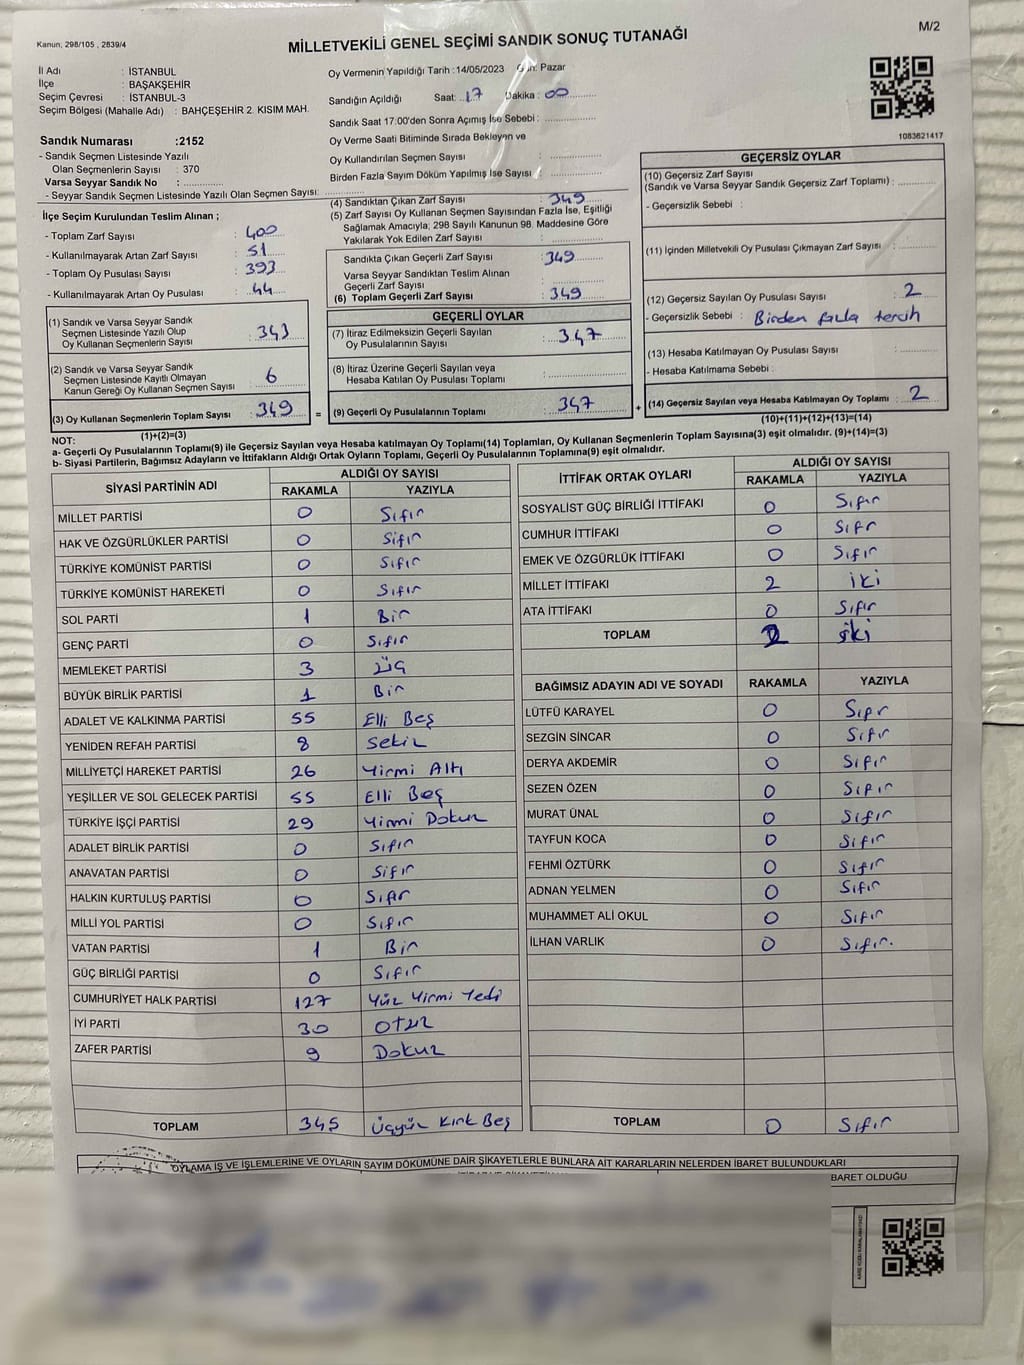 M/2
Kanun, 298/105 , 2839/4
MİLLETVEKİLİ GENEL SEÇİMİ SANDIK SONUÇ TUTANAĞI
İl Adı : İSTANBUL
İlçe : BAŞAKŞEHİR
Seçim Çevresi : İSTANBUL-3
Seçim Bölgesi (Mahalle Adı) : BAHÇEŞEHİR 2. KISIM MAH.
Sandık Numarası :2152
- Sandık Seçmen Listesinde Yazılı
Olan Seçmenlerin Sayısı : 370
Varsa Seyyar Sandık No :
- Seyyar Sandık Seçmen Listesinde Yazılı Olan Seçmen Sayısı:
Oy Vermenin Yapıldığı Tarih :14/05/2023 Gün: Pazar
Sandığın Açıldığı Saat: 17 Dakika : 00
Sandık Saat 17.00'den Sonra Açımış İse Sebebi :
Oy Verme Saati Bitiminde Sırada Bekleyen ve
Oy Kullandırılan Seçmen Sayısı :
Birden Fazla Sayım Döküm Yapılmış İse Sayısı :
1083621417
İlçe Seçim Kurulundan Teslim Alınan ;
- Toplam Zarf Sayısı : 400
- Kullanılmayarak Artan Zarf Sayısı : 51
- Toplam Oy Pusulası Sayısı : 393
- Kullanılmayarak Artan Oy Pusulası : 44
(1) Sandık ve Varsa Seyyar Sandık
Seçmen Listesinde Yazılı Olup
Oy Kullanan Seçmenlerin Sayısı : 343
(2) Sandık ve Varsa Seyyar Sandık
Seçmen Listesinde Kayıtlı Olmayan
Kanun Gereği Oy Kullanan Seçmen Sayısı : 6
(3) Oy Kullanan Seçmenlerin Toplam Sayısı : 349
(1)+(2)=(3)
(4) Sandıktan Çıkan Zarf Sayısı : 349
(5) Zarf Sayısı Oy Kullanan Seçmen Sayısından Fazla İse, Eşitliği
Sağlamak Amacıyla; 298 Sayılı Kanunun 98. Maddesine Göre
Yakılarak Yok Edilen Zarf Sayısı :
Sandıkta Çıkan Geçerli Zarf Sayısı : 349
Varsa Seyyar Sandıktan Teslim Alınan
Geçerli Zarf Sayısı :
(6) Toplam Geçerli Zarf Sayısı : 349
GEÇERLİ OYLAR
(7) İtiraz Edilmeksizin Geçerli Sayılan
Oy Pusulalarının Sayısı : 347
(8) İtiraz Üzerine Geçerli Sayılan veya
Hesaba Katılan Oy Pusulası Toplamı :
= (9) Geçerli Oy Pusulalarının Toplamı : 347 +
GEÇERSİZ OYLAR
(10) Geçersiz Zarf Sayısı
(Sandık ve Varsa Seyyar Sandık Geçersiz Zarf Toplamı) :
- Geçersizlik Sebebi :
(11) İçinden Milletvekili Oy Pusulası Çıkmayan Zarf Sayısı :
(12) Geçersiz Sayılan Oy Pusulası Sayısı : 2
- Geçersizlik Sebebi : Birden fazla tercih
(13) Hesaba Katılmayan Oy Pusulası Sayısı :
- Hesaba Katılmama Sebebi :
(14) Geçersiz Sayılan veya Hesaba Katılmayan Oy Toplamı : 2
(10)+(11)+(12)+(13)=(14)
NOT:
a- Geçerli Oy Pusulalarının Toplamı(9) ile Geçersiz Sayılan veya Hesaba katılmayan Oy Toplamı(14) Toplamları, Oy Kullanan Seçmenlerin Toplam Sayısına(3) eşit olmalıdır. (9)+(14)=(3)
b- Siyasi Partilerin, Bağımsız Adayların ve İttifakların Aldığı Ortak Oyların Toplamı, Geçerli Oy Pusulalarının Toplamına(9) eşit olmalıdır.
SİYASİ PARTİNİN ADI ALDIĞI OY SAYISI
RAKAMLA YAZIYLA
MİLLET PARTİSİ 0 Sıfır
HAK VE ÖZGÜRLÜKLER PARTİSİ 0 Sıfır
TÜRKİYE KOMÜNİST PARTİSİ 0 Sıfır
TÜRKİYE KOMÜNİST HAREKETİ 0 Sıfır
SOL PARTİ 1 Bir
GENÇ PARTİ 0 Sıfır
MEMLEKET PARTİSİ 3 üç
BÜYÜK BİRLİK PARTİSİ 1 Bir
ADALET VE KALKINMA PARTİSİ 55 Elli Beş
YENİDEN REFAH PARTİSİ 8 Sekiz
MİLLİYETÇİ HAREKET PARTİSİ 26 Yirmi Altı
YEŞİLLER VE SOL GELECEK PARTİSİ 55 Elli Beş
TÜRKİYE İŞÇİ PARTİSİ 29 Yirmi Dokuz
ADALET BİRLİK PARTİSİ 0 Sıfır
ANAVATAN PARTİSİ 0 Sıfır
HALKIN KURTULUŞ PARTİSİ 0 Sıfır
MİLLİ YOL PARTİSİ 0 Sıfır
VATAN PARTİSİ 1 Bir
GÜÇ BİRLİĞİ PARTİSİ 0 Sıfır
CUMHURİYET HALK PARTİSİ 127 Yüz Yirmi Yedi
İYİ PARTİ 30 Otuz
ZAFER PARTİSİ 9 Dokuz
TOPLAM 345 Üçyüz Kırk Beş
İTTİFAK ORTAK OYLARI ALDIĞI OY SAYISI
RAKAMLA YAZIYLA
SOSYALİST GÜÇ BİRLİĞİ İTTİFAKI 0 Sıfır
CUMHUR İTTİFAKI 0 Sıfır
EMEK VE ÖZGÜRLÜK İTTİFAKI 0 Sıfır
MİLLET İTTİFAKI 2 iki
ATA İTTİFAKI 0 Sıfır
TOPLAM 2 iki
BAĞIMSIZ ADAYIN ADI VE SOYADI RAKAMLA YAZIYLA
LÜTFÜ KARAYEL 0 Sıfır
SEZGİN SİNCAR 0 Sıfır
DERYA AKDEMİR 0 Sıfır
SEZEN ÖZEN 0 Sıfır
MURAT ÜNAL 0 Sıfır
TAYFUN KOCA 0 Sıfır
FEHMİ ÖZTÜRK 0 Sıfır
ADNAN YELMEN 0 Sıfır
MUHAMMET ALİ OKUL 0 Sıfır
İLHAN VARLIK 0 Sıfır.
TOPLAM 0 Sıfır
OYLAMA İŞ VE İŞLEMLERİNE VE OYLARIN SAYIM DÖKÜMÜNE DAİR ŞİKAYETLERLE BUNLARA AİT KARARLARIN NELERDEN İBARET BULUNDUKLARI
BARET OLDUĞU